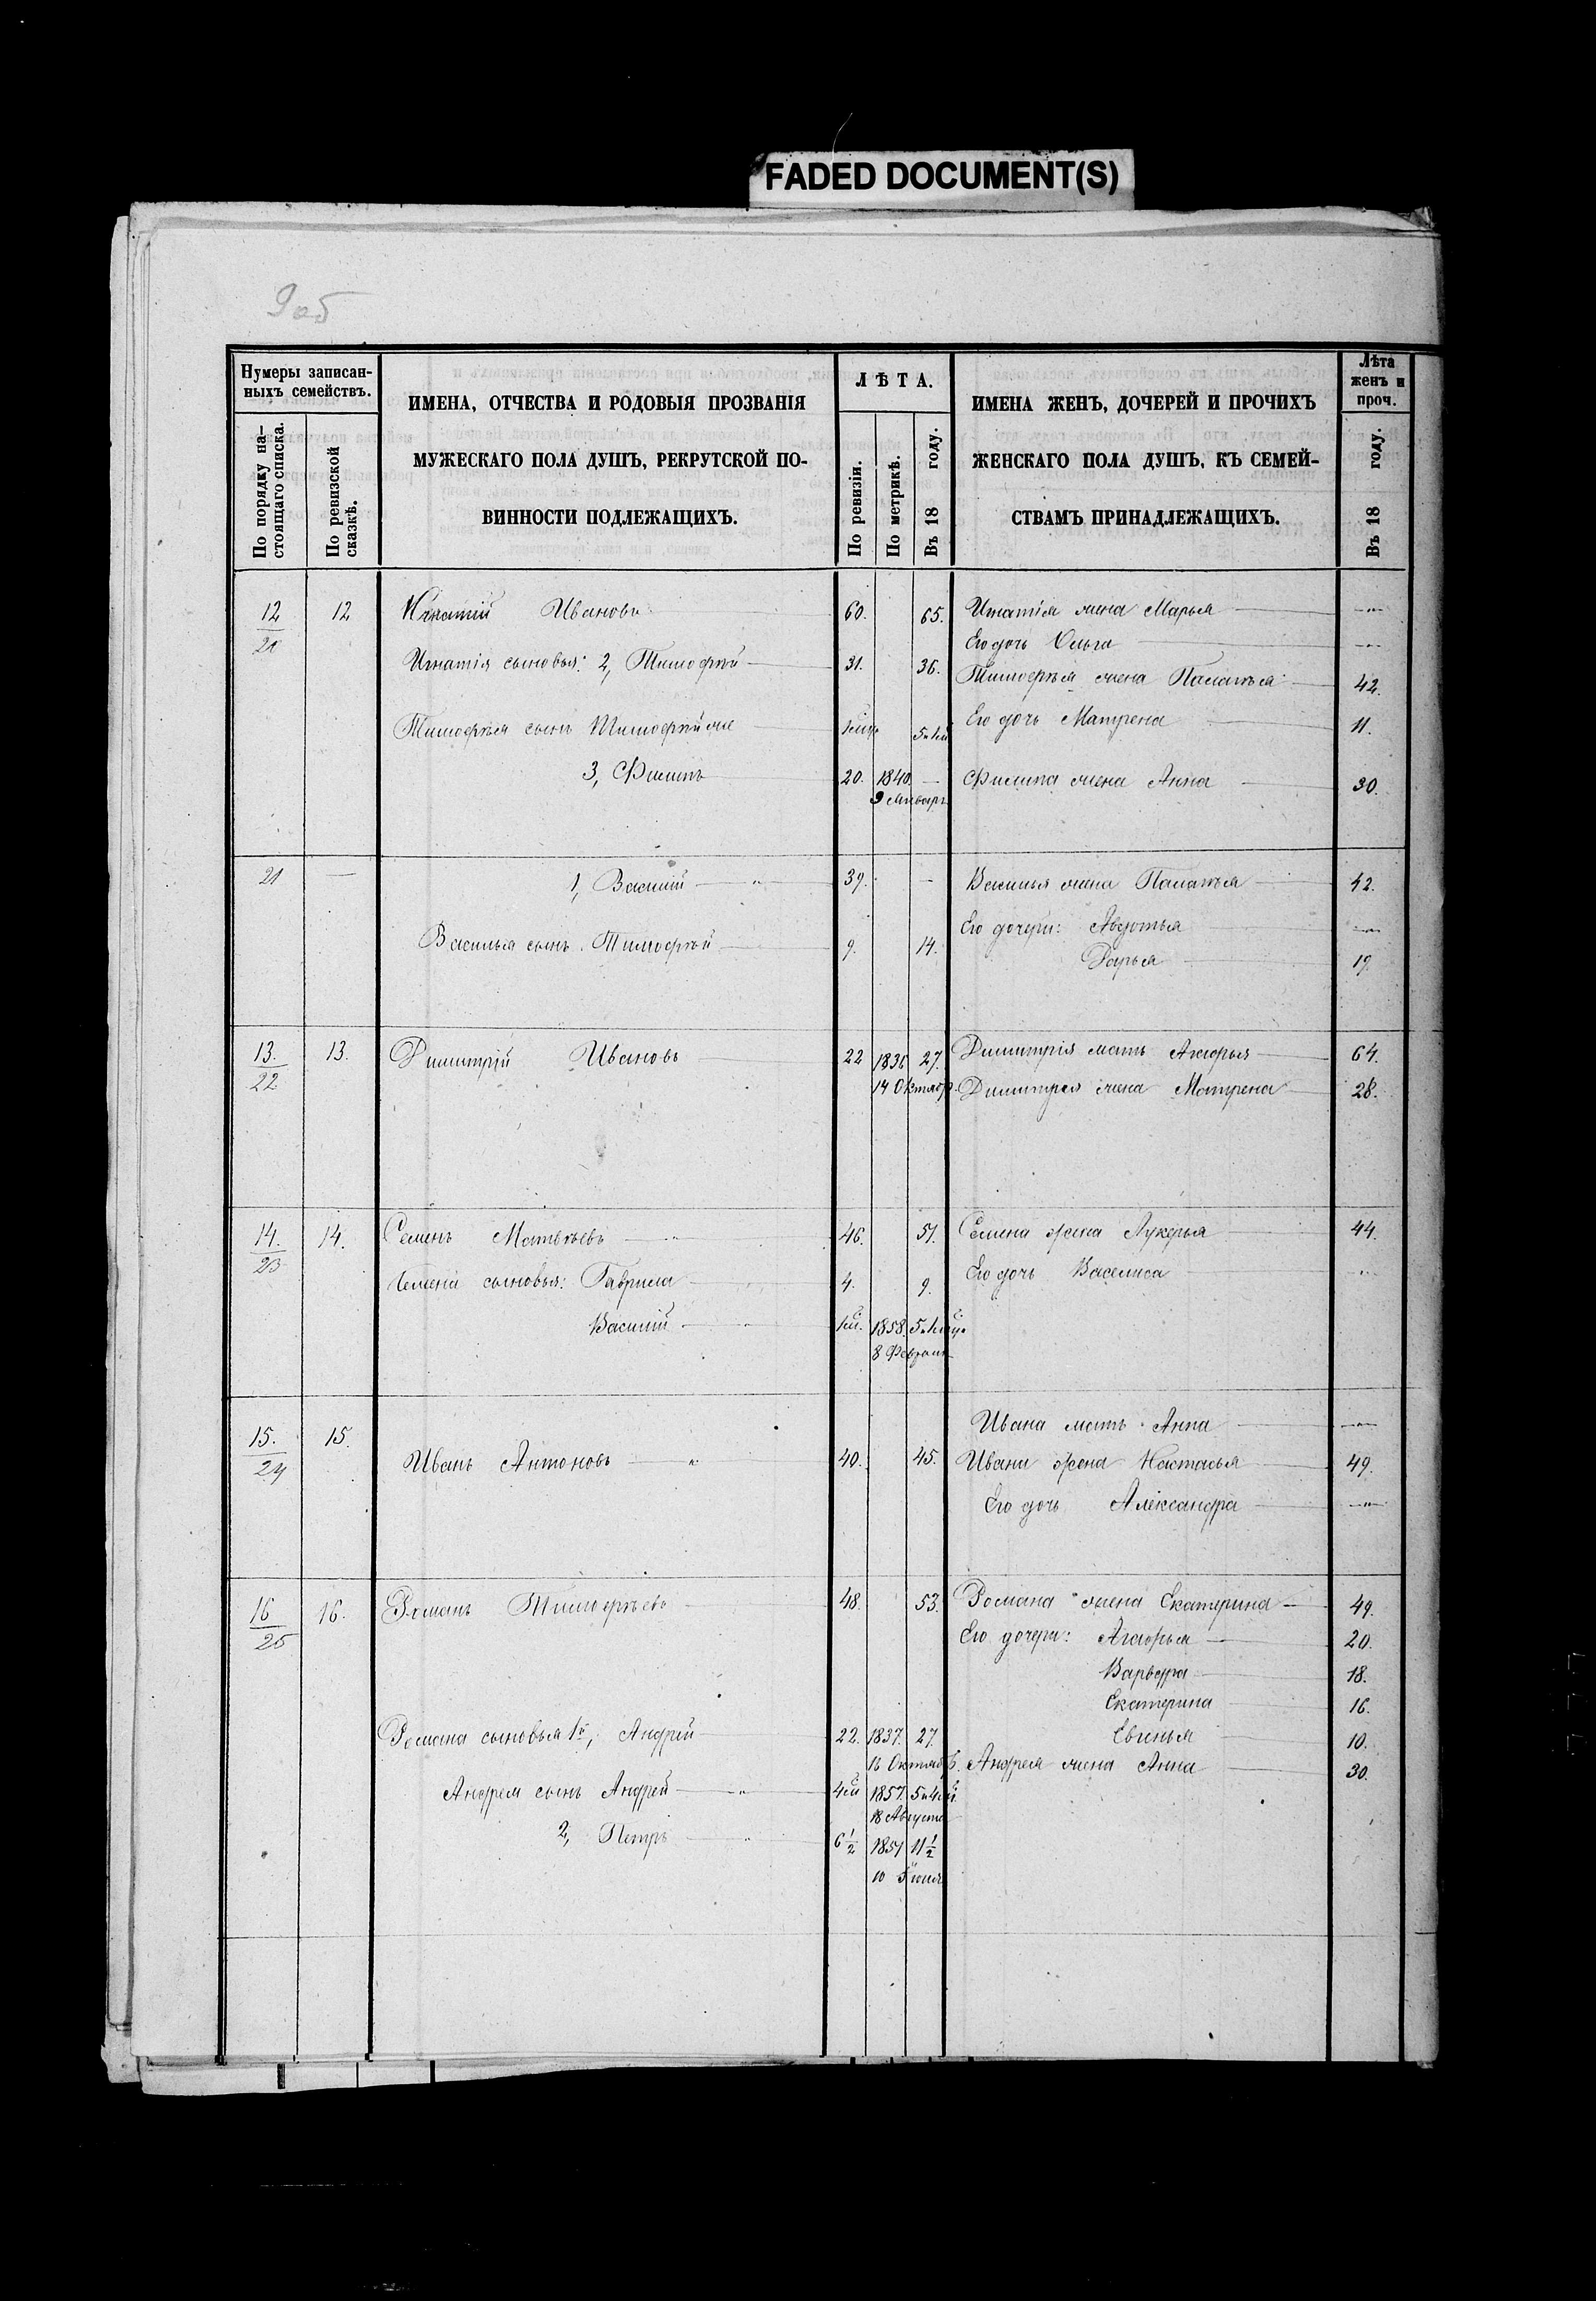 FADED DOCUMENT(S)
9 об
Нумеры записан-
ныхъ семействъ.
По порядку на-
стоящаго списка.
По ревизской
сказкѣ.
ИМЕНА, ОТЧЕСТВА И РОДОВЫЯ ПРОЗВАНІЯ
МУЖЕСКАГО ПОЛА ДУШЪ, РЕКРУТСКОЙ ПО-
ВИННОСТИ ПОДЛЕЖАЩИХЪ.
ЛѢТА.
По ревизіи.
По метрикѣ.
Въ 18 году.
ИМЕНА ЖЕНЪ, ДОЧЕРЕЙ И ПРОЧИХЪ
ЖЕНСКАГО ПОЛА ДУШЪ, КЪ СЕМЕЙ-
СТВАМЪ ПРИНАДЛЕЖАЩИХЪ.
Лѣта
женъ и
проч.
Въ 18 году.
12 12 Игнатій Ивановъ 60. 65. Игнатія жена Марья
21 Его дочь Ольга
Игнатія сыновья: 2, Тимофѣй 31. 36. Тимофѣя жена Палагѣя 42.
Тимофѣя сынъ Тимофѣй же Его дочь Матрена 11.
3, Филипъ 20. 1840 — Филипа жена Анна 30.
9 Январ.
21 — 1, Василій 39. — Василья жена Палагѣя 42.
Его дочери: Авдотья
Василья сынъ Тимофѣй 9. 14. Дарья 19.
13. 13. Димитрій Ивановъ 22 1836 27. Димитрія мать Агафья 64.
22 14 Октябр. Димитрія жена Матрена 28.
14. 14. Семенъ Матвѣевъ 46. 51. Семена жена Лукерья 44.
23 Семена сыновья: Гаврила 4. 9. Его дочь Васелиса
Василій 1858.
8 Феврал
Ивана мать Анна
15. 15.
24 Иванъ Антоновъ 40. 45. Ивана жена Настасья 49.
Его дочь Александра
16 16. Романъ Тимофѣевъ 48. 53. Романа жена Екатерина 49.
25 Его дочери: Агафья 20.
Варвара 18.
Екатерина 16.
Романа сыновья 1й, Андрей 22. 1837. 27. Евгенья 10.
16 Октябр. Андрея жена Анна 30.
Андрея сынъ Андрей 1857.
18 Августа
2, Петръ 6 1/2 1851 11 1/2
10 Іюня